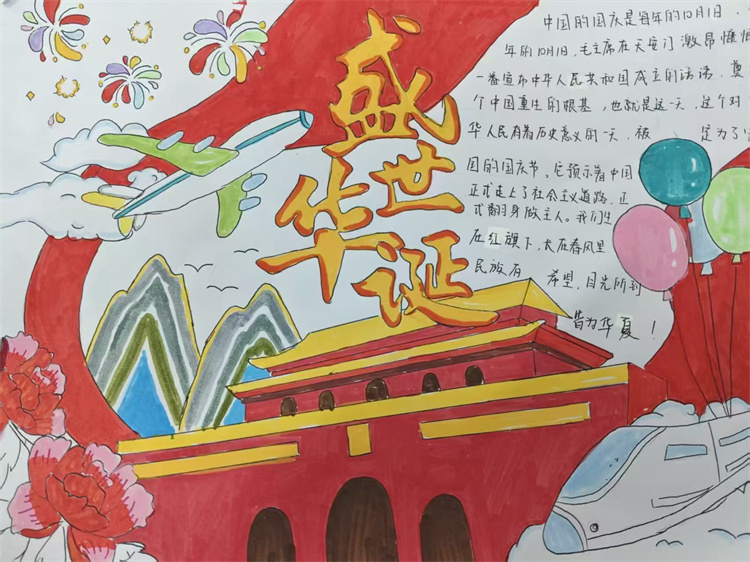 盛世华诞
中国的国庆是每年的10月1日.
年的10月1日,毛主席在天安门激昂慷慨
一番宣布中华人民共和国成立的话语,奠
个中国重生的根基,也就是这一天,这个对
华人民有着历史意义的一天,被 定为了
国的国庆节,它预示着中国
正式走上了社会主义道路,正
式翻身做主人。我们生
在红旗下,长在春风里
民族有 希望,目光所到
皆为华夏!